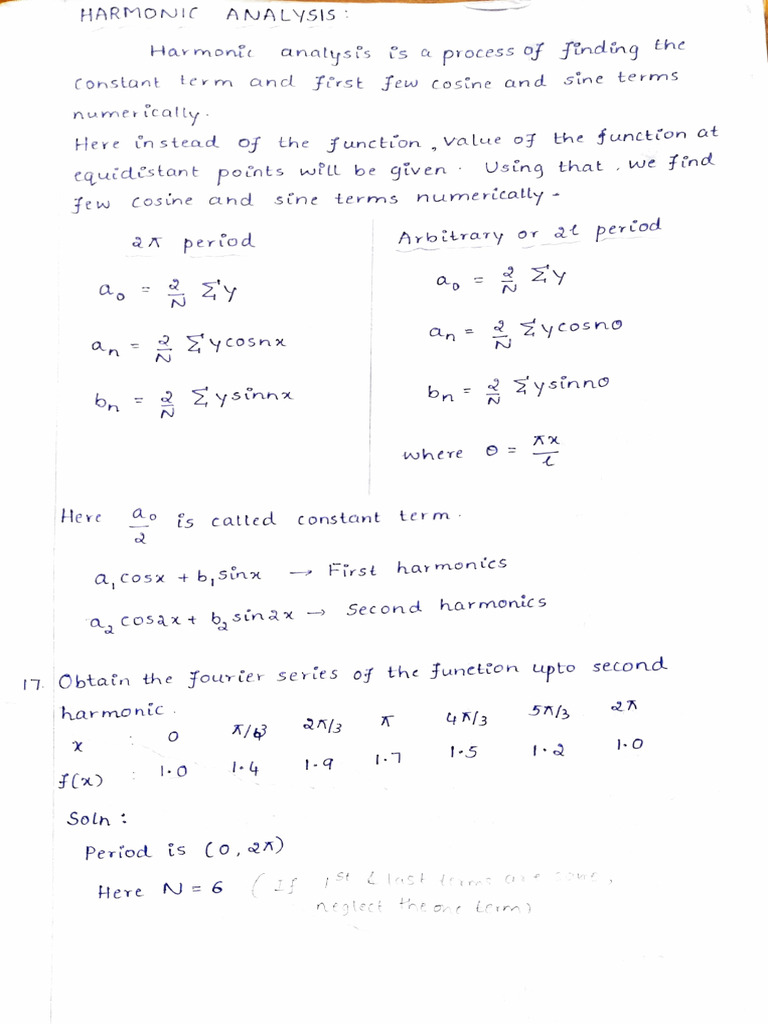 HARMONIC ANALYSIS:
Harmonic analysis is a process of finding the
constant term and first few cosine and sine terms
numerically.
Here instead of the function, value of the function at
equidistant points will be given. Using that, we find
few cosine and sine terms numerically.
2π period
a₀ = 2/N Σy
aₙ = 2/N Σy cosnx
bₙ = 2/N Σy sinnx
Arbitrary or 2l period
a₀ = 2/N Σy
aₙ = 2/N Σy cosnθ
bₙ = 2/N Σy sinnθ
where θ = πx/l
Here a₀/2 is called constant term.
a₁cosx + b₁sinx → First harmonics
a₂cos2x + b₂sin2x → Second harmonics
17. Obtain the fourier series of the function upto second
harmonic.
x : 0 π/3 2π/3 π 4π/3 5π/3 2π
f(x) : 1.0 1.4 1.9 1.7 1.5 1.2 1.0
Soln:
Period is (0, 2π)
Here N = 6 (If 1st & last terms are same,
neglect the one term)